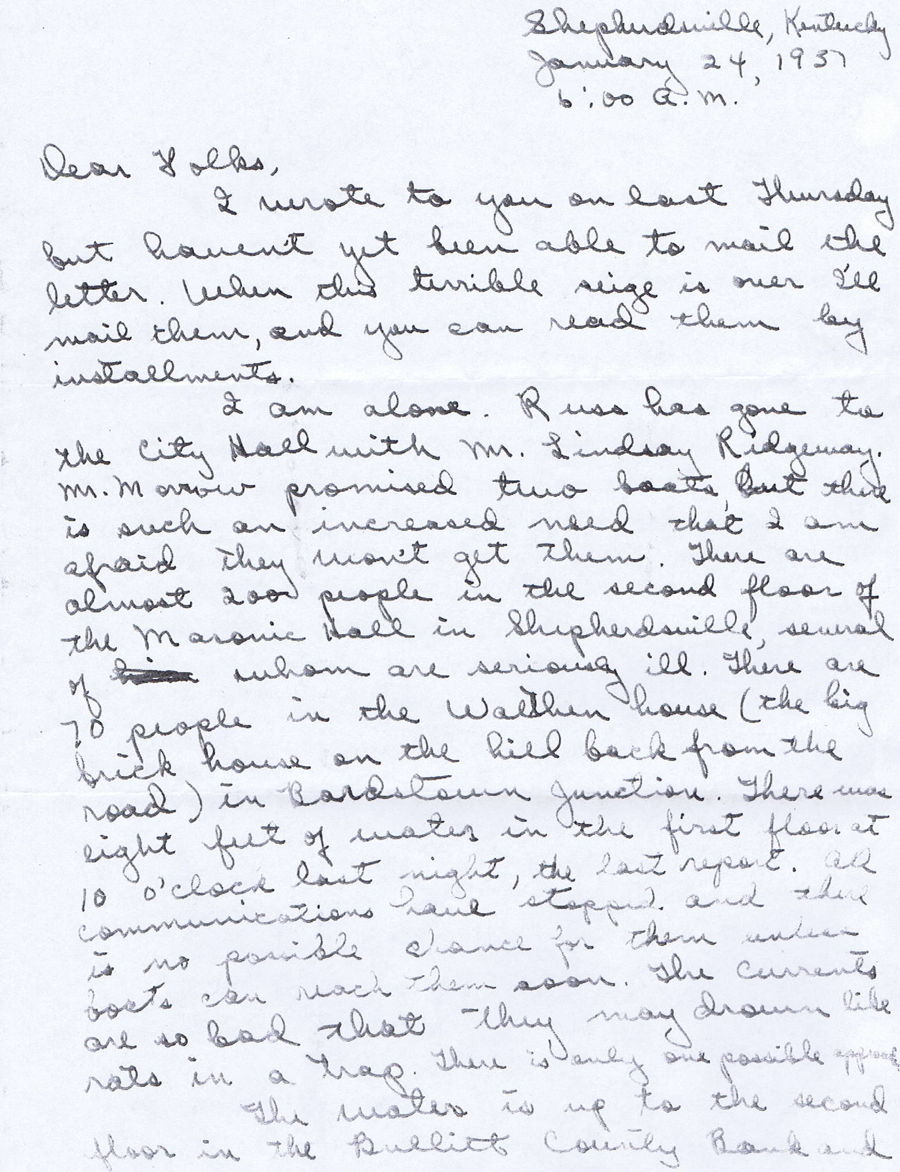 Shepherdsville, Kentucky
January 24, 1937
6:00 A.M.
Dear Folks,
I wrote to you on last Thursday
but haven't yet been able to mail the
letter. When this terrible seige is over I'll
mail them, and you can read them by
installments.
I am alone. Russ has gone to
the City Hall with Mr. Lindsay Ridgeway.
Mr. Morrow promised two boats, but there
is such an increased need that I am
afraid they won't get them. There are
almost 200 people in the second floor of
the Masonic Hall in Shepherdsville, several
of whom are seriously ill. There are
70 people in the Wathen house (the big
brick house on the hill back from the
road) in Bardstown Junction. There was
eight feet of water in the first floor at
10 o'clock last night, the last report. All
communications have stopped and there
is no possible chance for them unless
boats can reach them soon. The currents
are so bad that they may drown like
rats in a trap. There is only one possible
The water is up to the second
floor in the Bullitt County Bank and